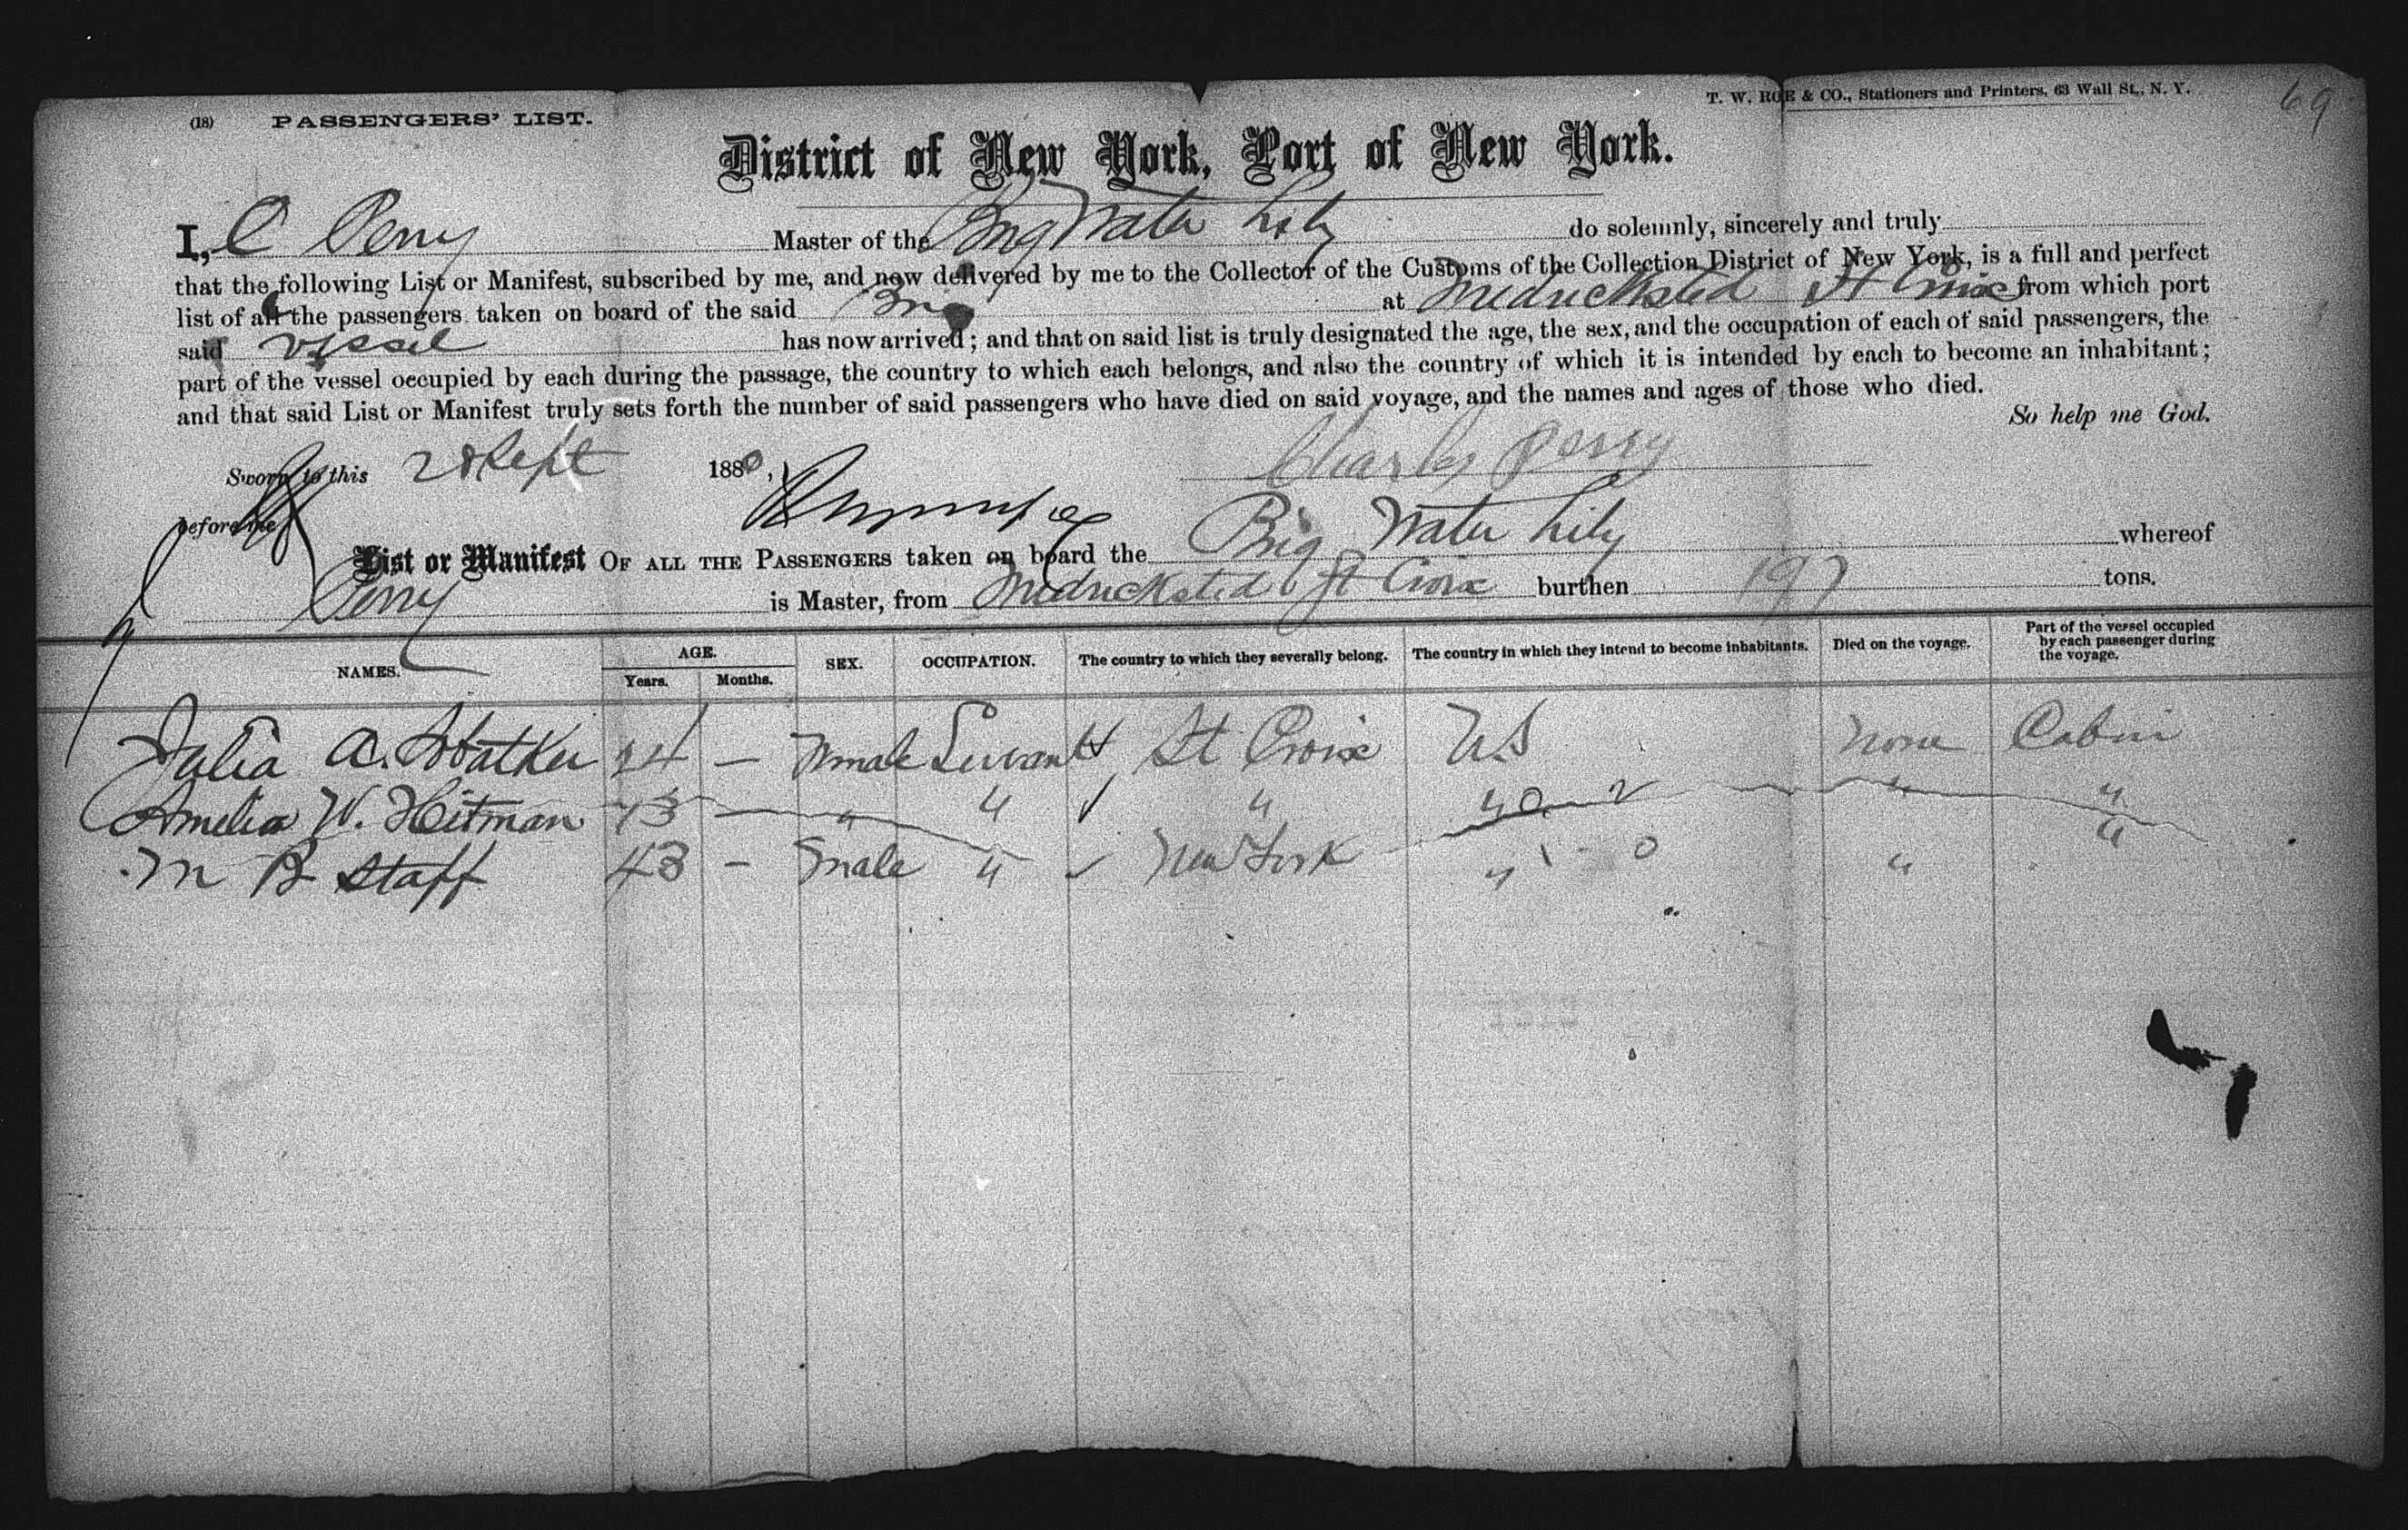 T. W. ROE & CO., Stationers and Printers, 63 Wall St., N. Y.
69
(18) PASSENGERS' LIST.
District of New York, Port of New York.
I, C Perry Master of the Brig Water Lily do solemnly, sincerely and truly
that the following List or Manifest, subscribed by me, and now delivered by me to the Collector of the Customs of the Collection District of New York, is a full and perfect
list of all the passengers taken on board of the said Brig at Fredricksted St Croix from which port
said vessel has now arrived; and that on said list is truly designated the age, the sex, and the occupation of each of said passengers, the
part of the vessel occupied by each during the passage, the country to which each belongs, and also the country of which it is intended by each to become an inhabitant;
and that said List or Manifest truly sets forth the number of said passengers who have died on said voyage, and the names and ages of those who died.
So help me God.
Sworn to this 28 Sept 1880, Charles Perry
before me
List or Manifest OF ALL THE PASSENGERS taken on board the Brig Water Lily whereof
Perry is Master, from Fredricksted St Croix burthen 197 tons.
NAMES. AGE. Years. Months. SEX. OCCUPATION. The country to which they severally belong. The country in which they intend to become inhabitants. Died on the voyage. Part of the vessel occupied by each passenger during the voyage.
Julia A. 24 — Female Servant St Croix US None Cabin
Amelia W. Heitman 13 — " " " " " "
M B Staff 43 - Male " New York " " "